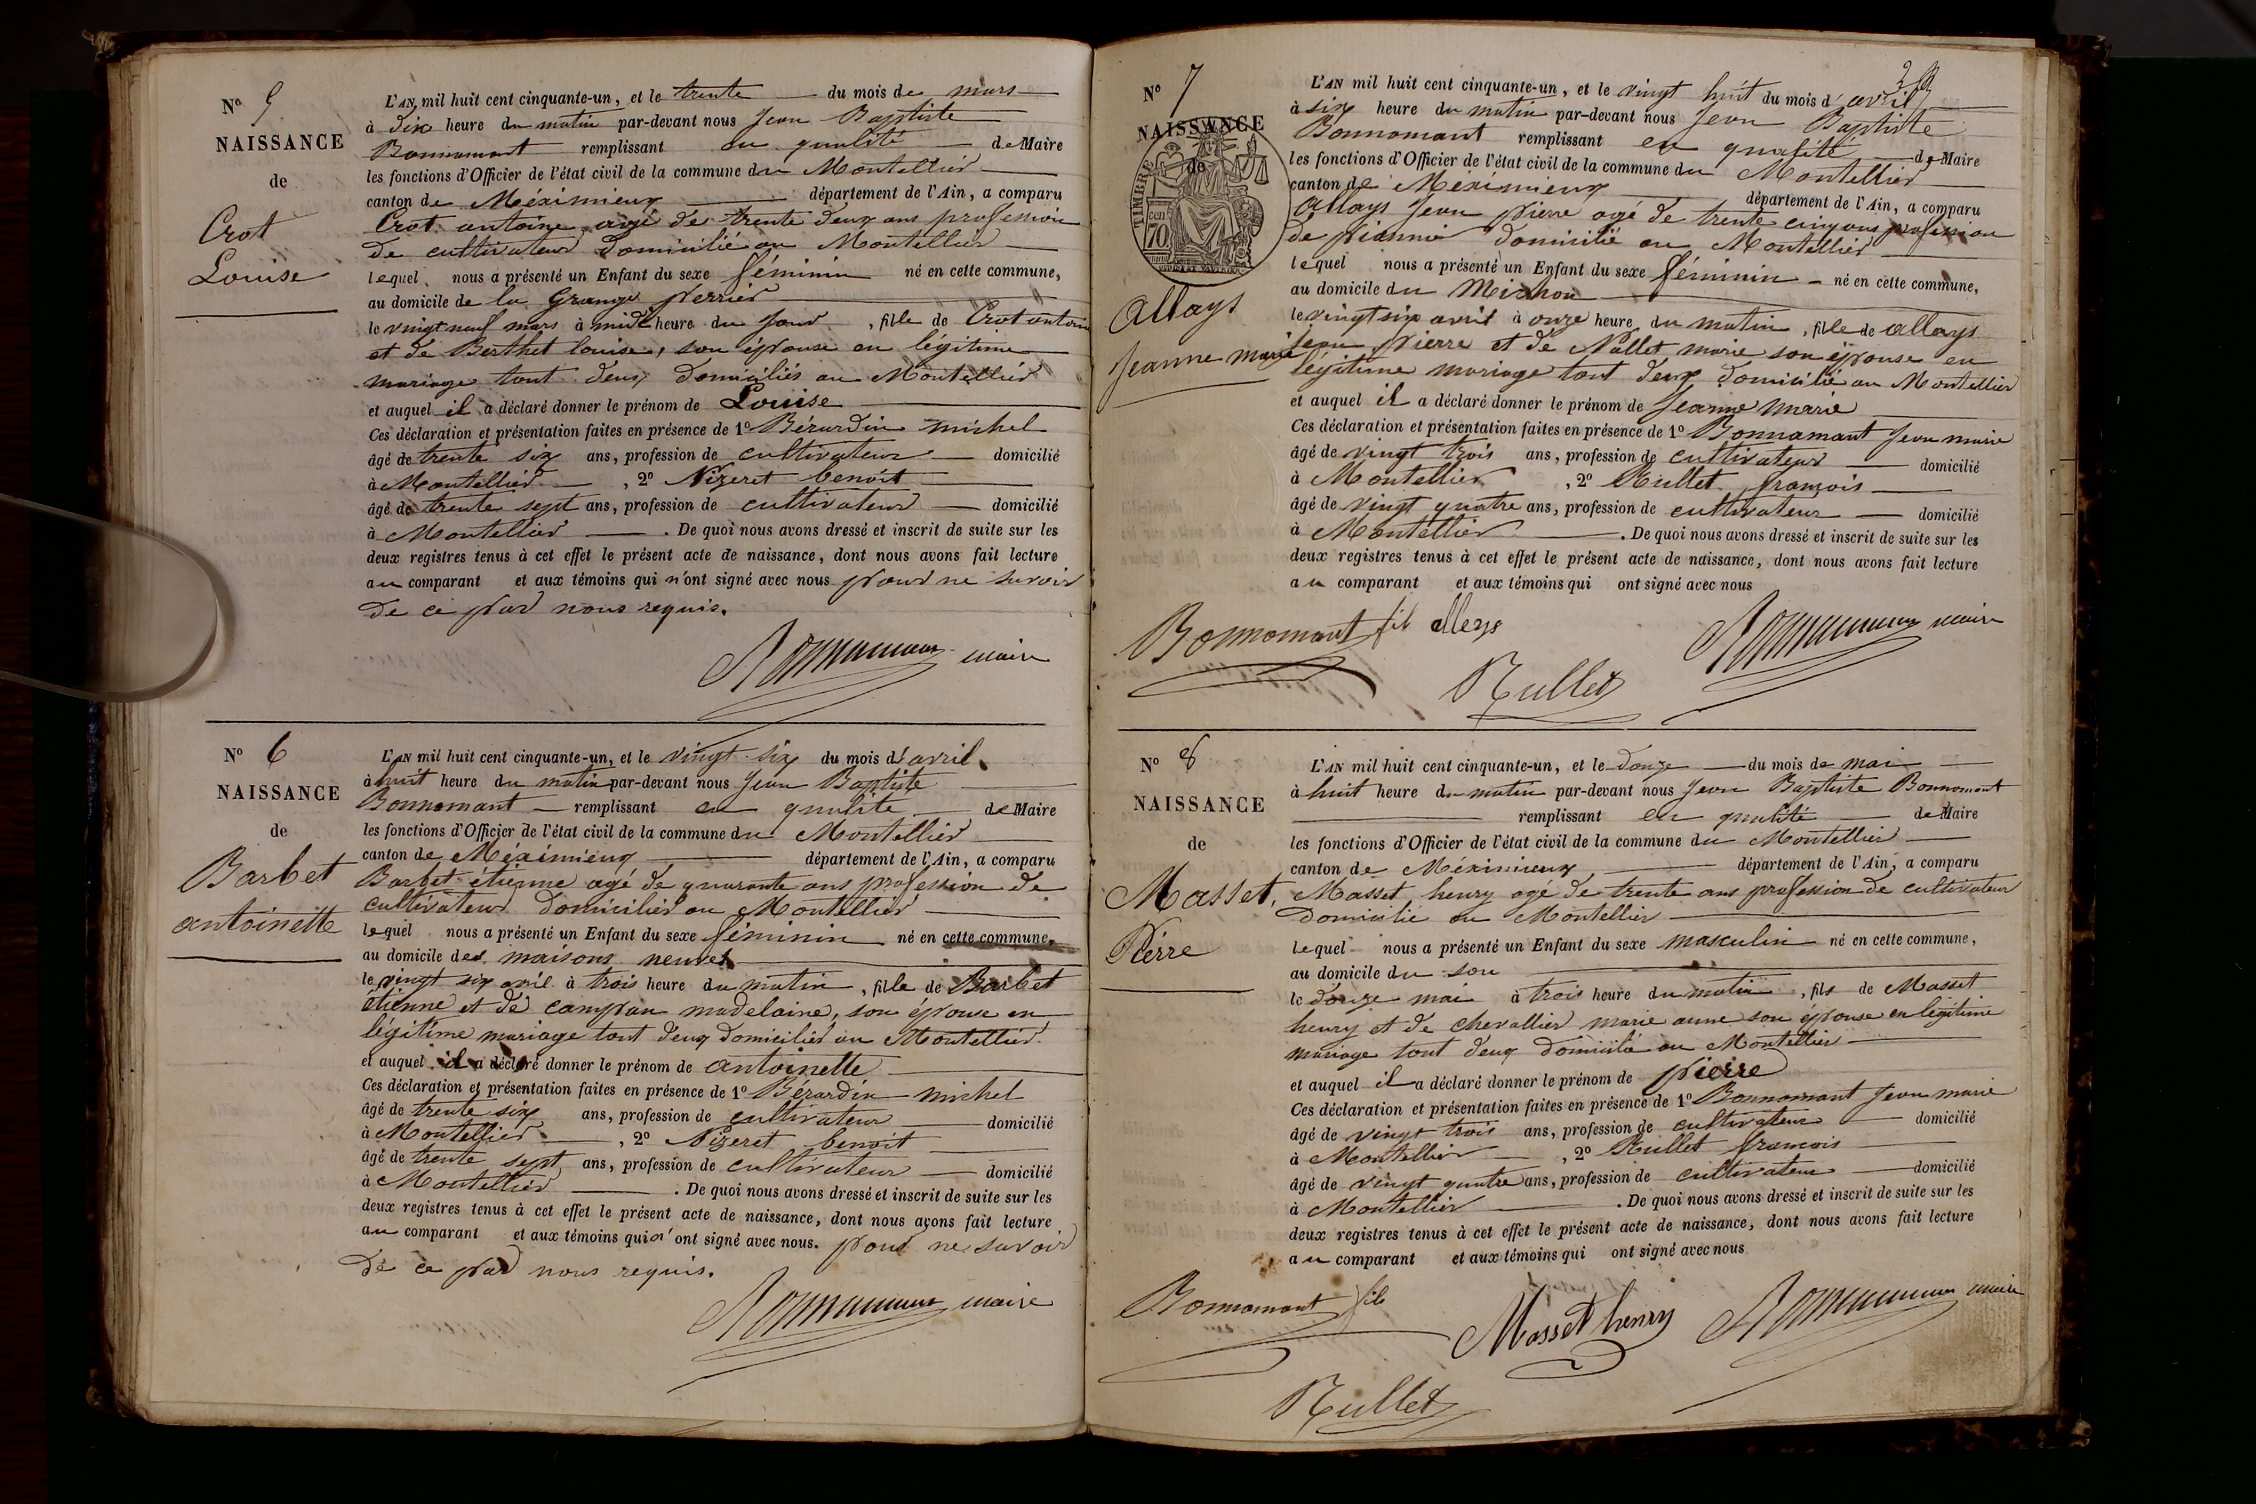 N° 5
NAISSANCE
de
Crot
Louise
L'AN mil huit cent cinquante-un, et le trente du mois de mars
à dix heure du matin par-devant nous Jean Baptiste
Bonnamant remplissant en qualité de Maire
les fonctions d'Officier de l'état civil de la commune du Montellier
canton de Méximieux département de l'Ain, a comparu
Crot antoine agé de trente deux ans profession
de cultivateur domicilié au Montellier
lequel nous a présenté un Enfant du sexe féminin né en cette commune,
au domicile de la Grange perrier
le vingt neuf mars à midi heure du jour, fille de Crot antoine
et de Berthet louise, son épouse en légitime
mariage tout deux domiciliés au Montellier
et auquel il a déclaré donner le prénom de Louise
Ces déclaration et présentation faites en présence de 1° Bérardin michel
âgé de trente six ans, profession de cultivateur domicilié
à Montellier, 2° Nizeret benoit
âgé de trente sept ans, profession de cultivateur domicilié
à Montellier. De quoi nous avons dressé et inscrit de suite sur les
deux registres tenus à cet effet le présent acte de naissance, dont nous avons fait lecture
au comparant et aux témoins qui n'ont signé avec nous pour ne savoir
de ce par nous requis.
Bonnamant maire
N° 6
NAISSANCE
de
Barbet
antoinette
L'AN mil huit cent cinquante-un, et le vingt six du mois d'avril
à huit heure du matin par-devant nous Jean Baptiste
Bonnamant remplissant en qualité de Maire
les fonctions d'Officier de l'état civil de la commune du Montellier
canton de Méximieux département de l'Ain, a comparu
Barbet étienne agé de quarante ans profession de
cultivateur domicilier au Montellier
lequel nous a présenté un Enfant du sexe féminin né en cette commune,
au domicile des maisons neuves
le vingt six avril à trois heure du matin, fille de Barbet
étienne et de campan madelaine, son épouse en
légitime mariage tout deux domicilier au Montellier.
et auquel il a déclaré donner le prénom de antoinette
Ces déclaration et présentation faites en présence de 1° Bérardin michel
âgé de trente six ans, profession de cultivateur domicilié
à Montellier, 2° Nizeret benoit
âgé de trente sept ans, profession de cultivateur domicilié
à Montellier. De quoi nous avons dressé et inscrit de suite sur les
deux registres tenus à cet effet le présent acte de naissance, dont nous avons fait lecture
au comparant et aux témoins qui n'ont signé avec nous. pour ne savoir
de ce par nous requis.
Bonnamant maire
N° 7
NAISSANCE
de
TIMBRE
70
allays
Jeanne marie
L'AN mil huit cent cinquante-un, et le vingt huit du mois d'avril
à six heure du matin par-devant nous Jean Baptiste
Bonnamant remplissant en qualité de Maire
les fonctions d'Officier de l'état civil de la commune du Montellier
canton de Méximieux département de l'Ain, a comparu
allays Jean pierre agé de trente cinq ans profession
de domicilié au Montellier
lequel nous a présenté un Enfant du sexe féminin né en cette commune,
au domicile du Michon
le vingt six avril à onze heure du matin, fille de allays
jean pierre et de Nallet marie son épouse en
légitime mariage tout deux domicilié au Montellier
et auquel il a déclaré donner le prénom de Jeanne marie
Ces déclaration et présentation faites en présence de 1° Bonnamant Jean marie
âgé de vingt trois ans, profession de cultivateur domicilié
à Montellier, 2° Rullet françois
âgé de vingt quatre ans, profession de cultivateur domicilié
à Montellier. De quoi nous avons dressé et inscrit de suite sur les
deux registres tenus à cet effet le présent acte de naissance, dont nous avons fait lecture
au comparant et aux témoins qui ont signé avec nous
Bonnamant fils alleys Bonnamant maire
Rullet
N° 8
NAISSANCE
de
Masset,
Pierre
L'AN mil huit cent cinquante-un, et le douze du mois de mai
à huit heure du matin par-devant nous Jean Baptiste Bonnamant
remplissant en qualité de Maire
les fonctions d'Officier de l'état civil de la commune du Montellier
canton de Méximieux département de l'Ain, a comparu
Masset, henry agé de trente ans profession de cultivateur
domicilié au Montellier
lequel nous a présenté un Enfant du sexe masculin né en cette commune,
au domicile du sou
le douze mai à trois heure du matin, fils de Masset
henry et de chevallier marie anne son épouse en légitime
mariage tout deux domicilié au Montellier
et auquel il a déclaré donner le prénom de pierre
Ces déclaration et présentation faites en présence de 1° Bonnamant Jean marie
âgé de vingt trois ans, profession de cultivateur domicilié
à Montellier, 2° Rullet françois
âgé de vingt quatre ans, profession de cultivateur domicilié
à Montellier. De quoi nous avons dressé et inscrit de suite sur les
deux registres tenus à cet effet le présent acte de naissance, dont nous avons fait lecture
au comparant et aux témoins qui ont signé avec nous
Bonnamant fils Masset henry Bonnamant maire
Rullet